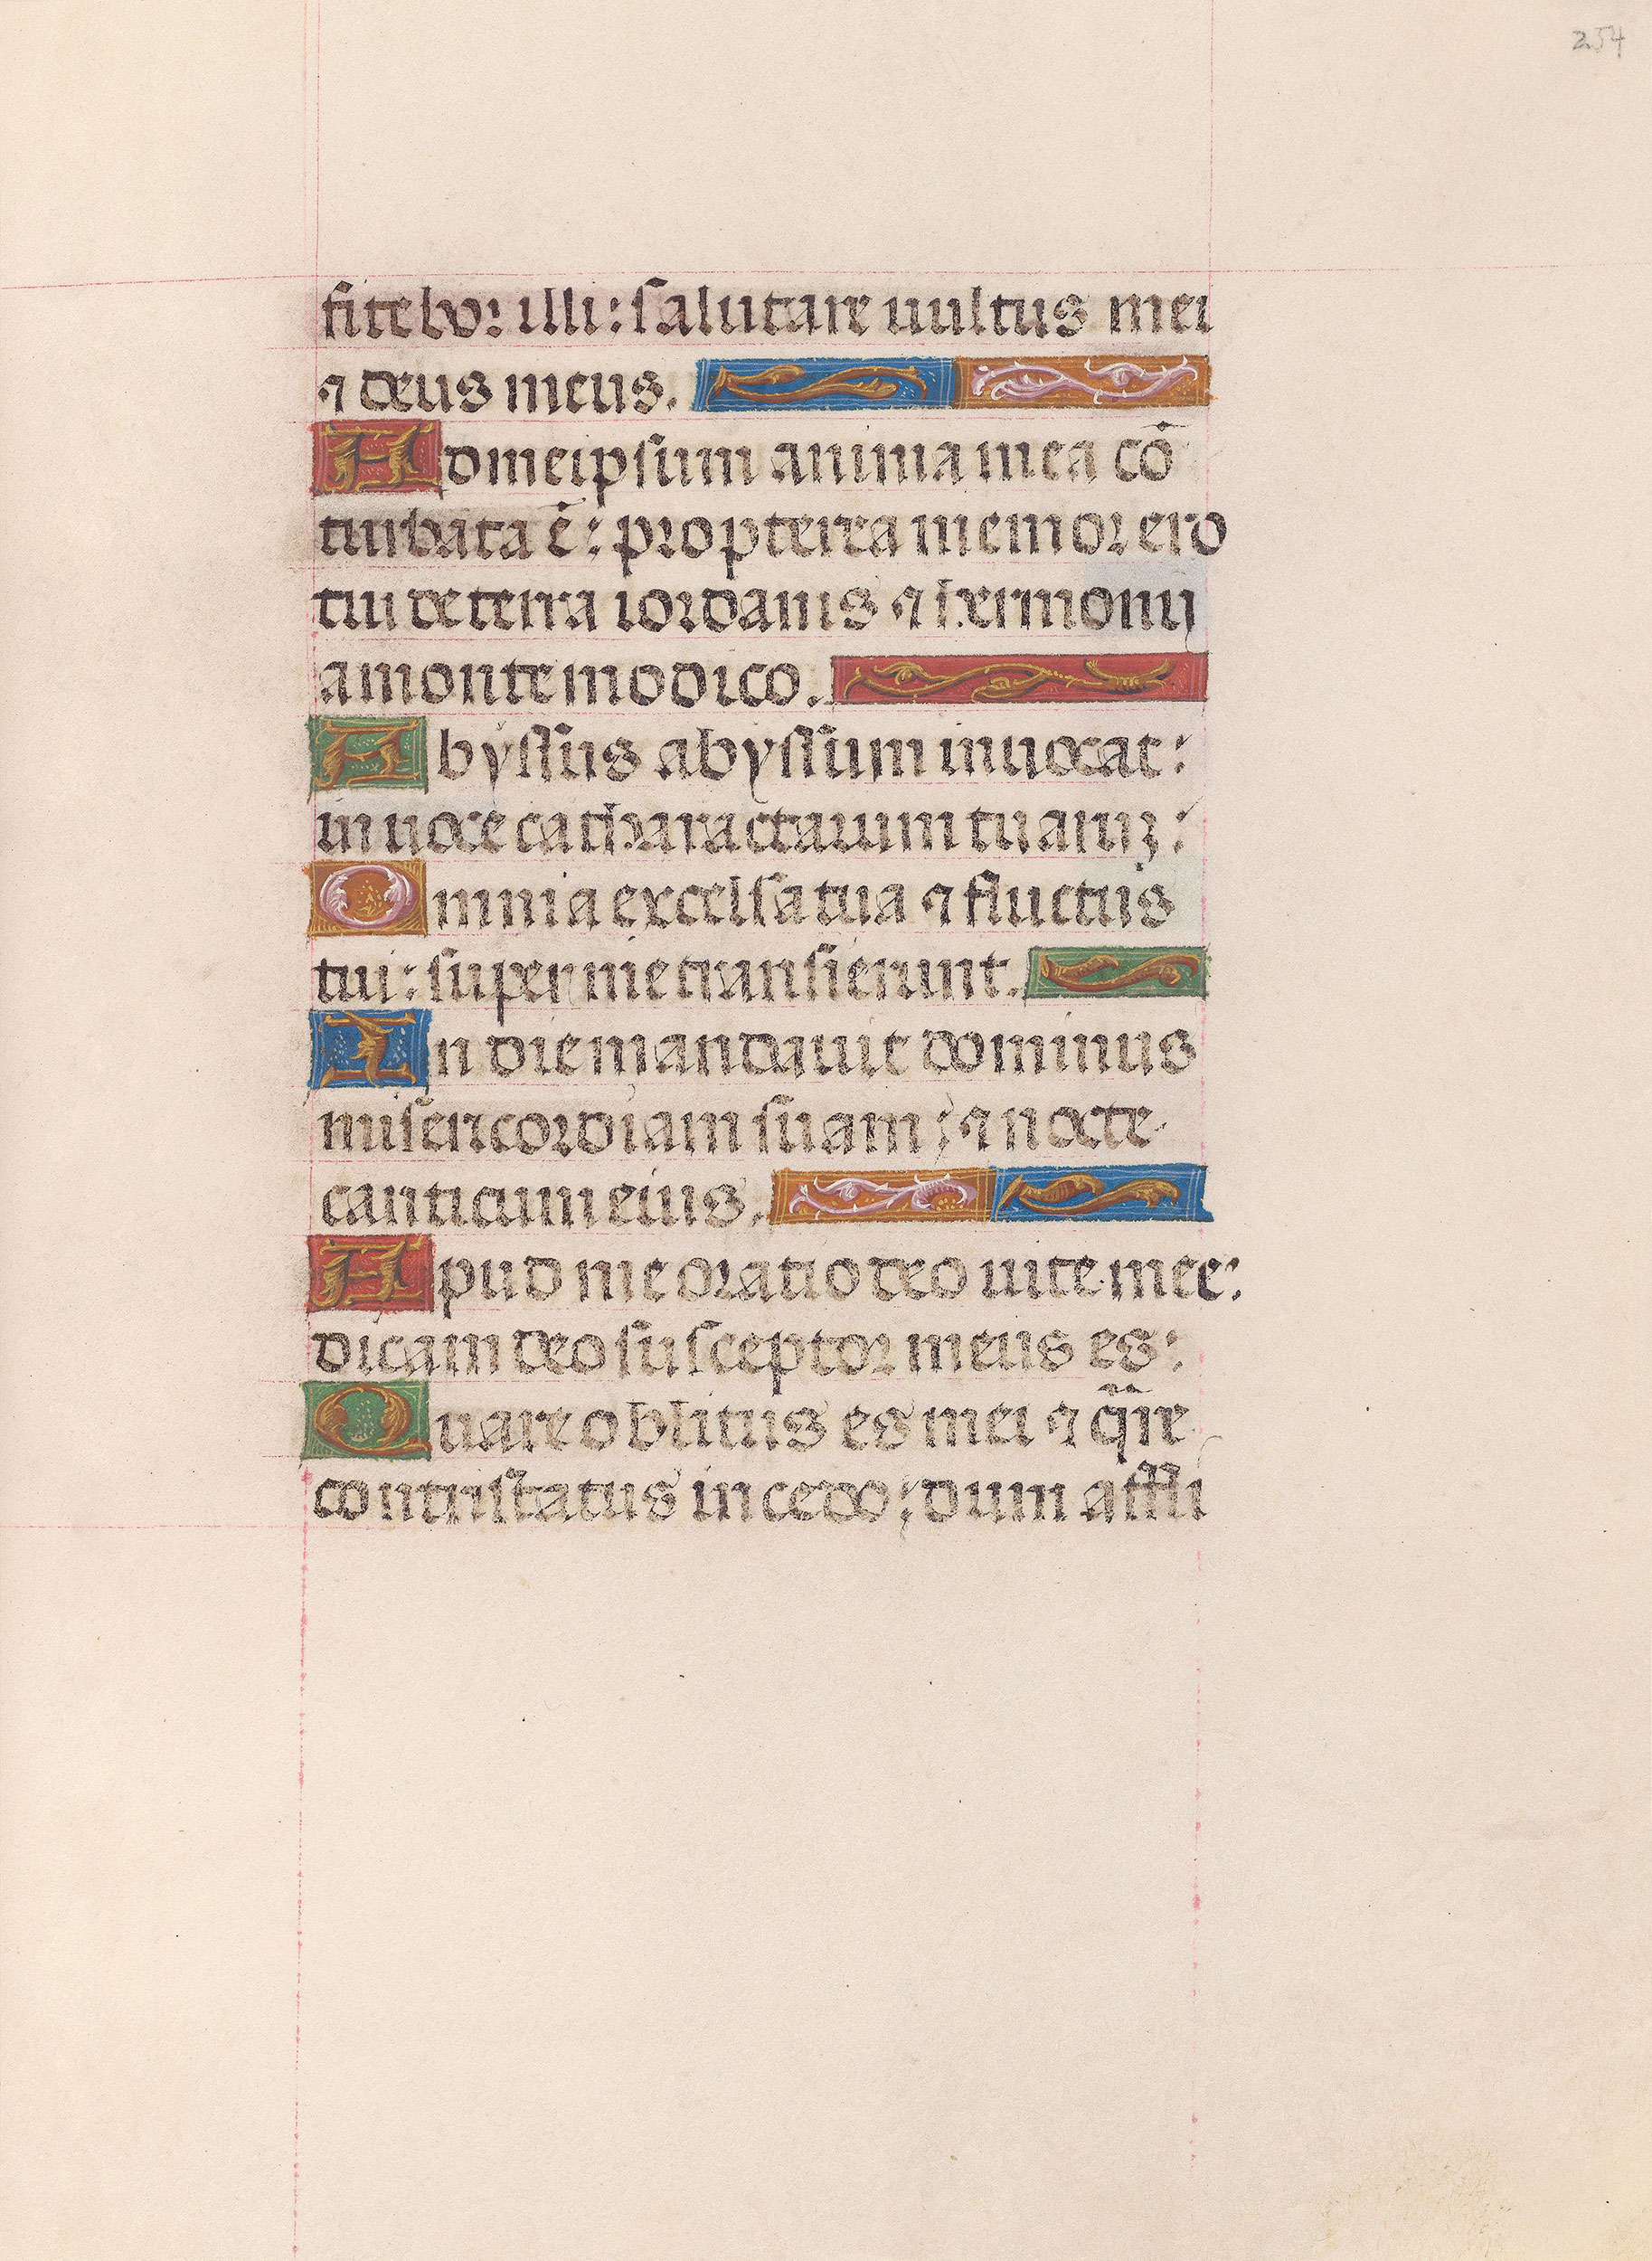 254
fitebor illi: salutare uultus mei
⁊ deus meus.
Ad meipsum anima mea cō
turbata ē: propterea memor ero
tui de terra iordanis ⁊ hermonij
a monte modico.
Abyssus abyssum inuocat:
in uoce catharactarum tuaruꝫ:
Omnia excelsa tua ⁊ fluctus
tui: super me transierunt.
In die mandauit dominus
misericordiam suam: ⁊ nocte
canticum eius.
Apud me oratio deo uite mee:
dicam deo susceptor meus es:
Quare oblitus es mei ⁊ q̄re
contristatus incedo: dum affli